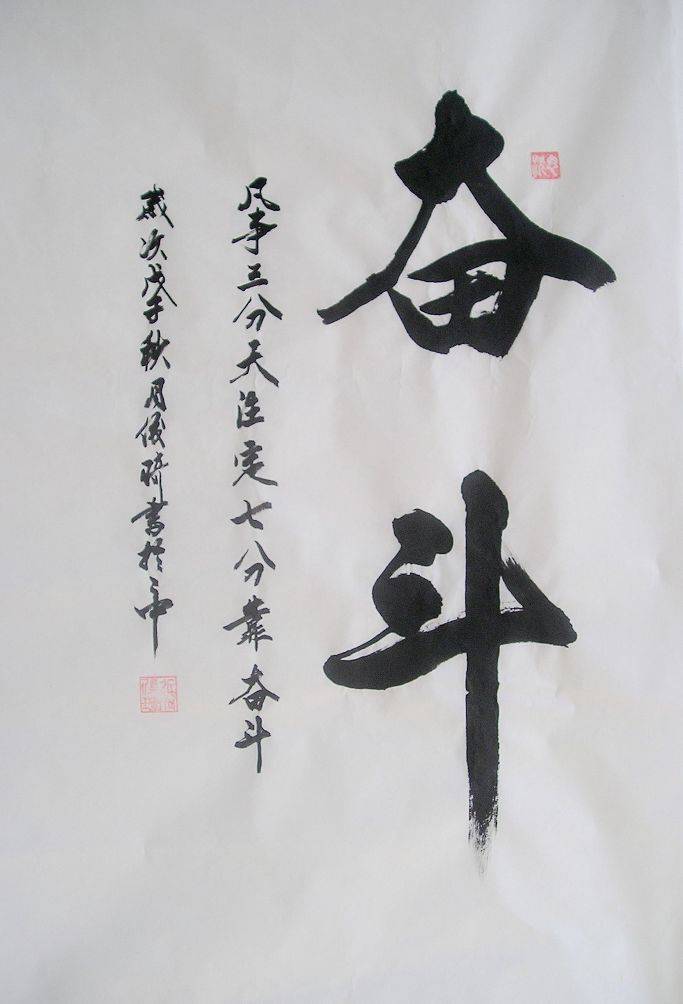 奋斗
凡事三分天注定七分靠奋斗
岁次戊子秋月俊骑书于